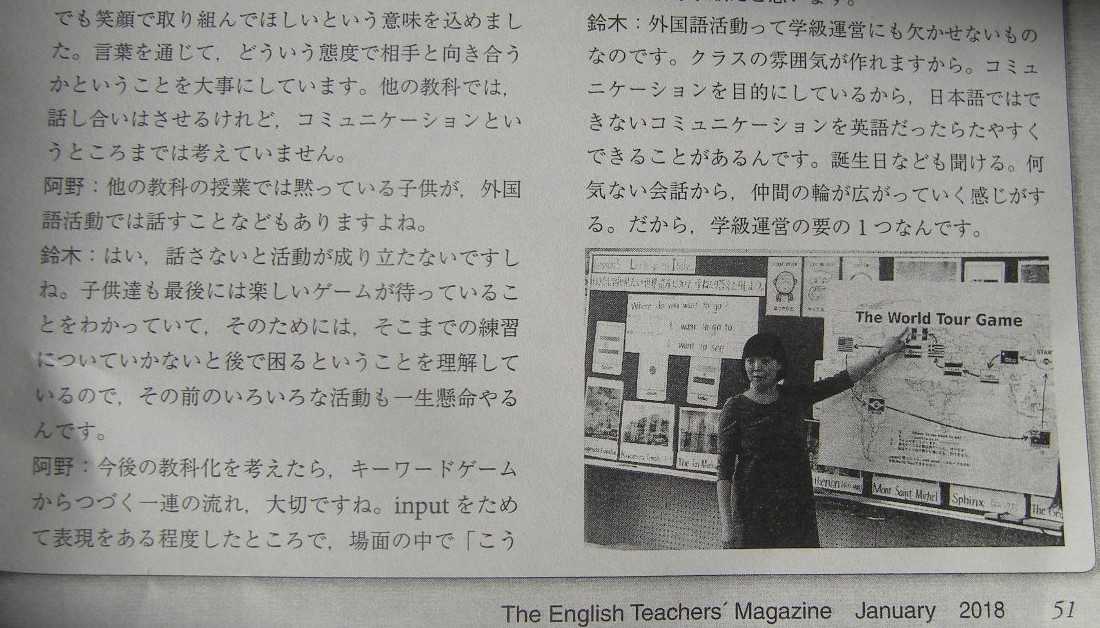 でも笑顔で取り組んでほしいという意味を込めまし
た。言葉を通じて，どういう態度で相手と向き合う
かということを大事にしています。他の教科では，
話し合いはさせるけれど，コミュニケーションとい
うところまでは考えていません。
阿野：他の教科の授業では黙っている子供が，外国
語活動では話すことなどもありますよね。
鈴木：はい，話さないと活動が成り立たないですし
ね。子供達も最後には楽しいゲームが待っているこ
とをわかっていて，そのためには，そこまでの練習
についていかないと後で困るということを理解して
いるので，その前のいろいろな活動も一生懸命やる
んです。
阿野：今後の教科化を考えたら，キーワードゲーム
からつづく一連の流れ，大切ですね。input をため
て表現をある程度したところで，場面の中で「こう
鈴木：外国語活動って学級運営にも欠かせないもの
なのです。クラスの雰囲気が作れますから。コミュ
ニケーションを目的にしているから，日本語ではで
きないコミュニケーションを英語だったらたやすく
できることがあるんです。誕生日なども聞ける。何
気ない会話から，仲間の輪が広がっていく感じがす
る。だから，学級運営の要の1つなんです。
Where do you want to go?
I want to go to
I want to see
The World Tour Game
START
Mont Saint Michel
Sphinx
The English Teachers' Magazine January 2018 51